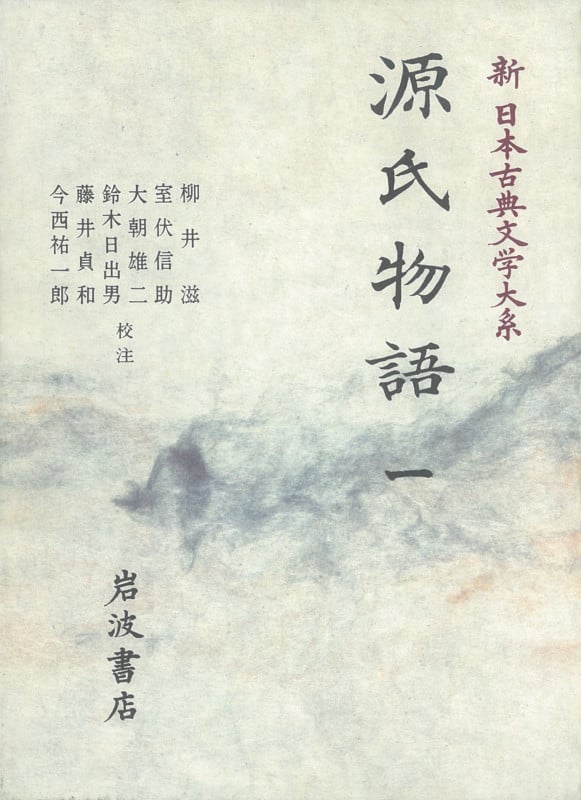 新 日本古典文学大系
源氏物語 一
柳井 滋
室伏信助
大朝雄二
鈴木日出男
藤井貞和
今西祐一郎
校注
岩波書店